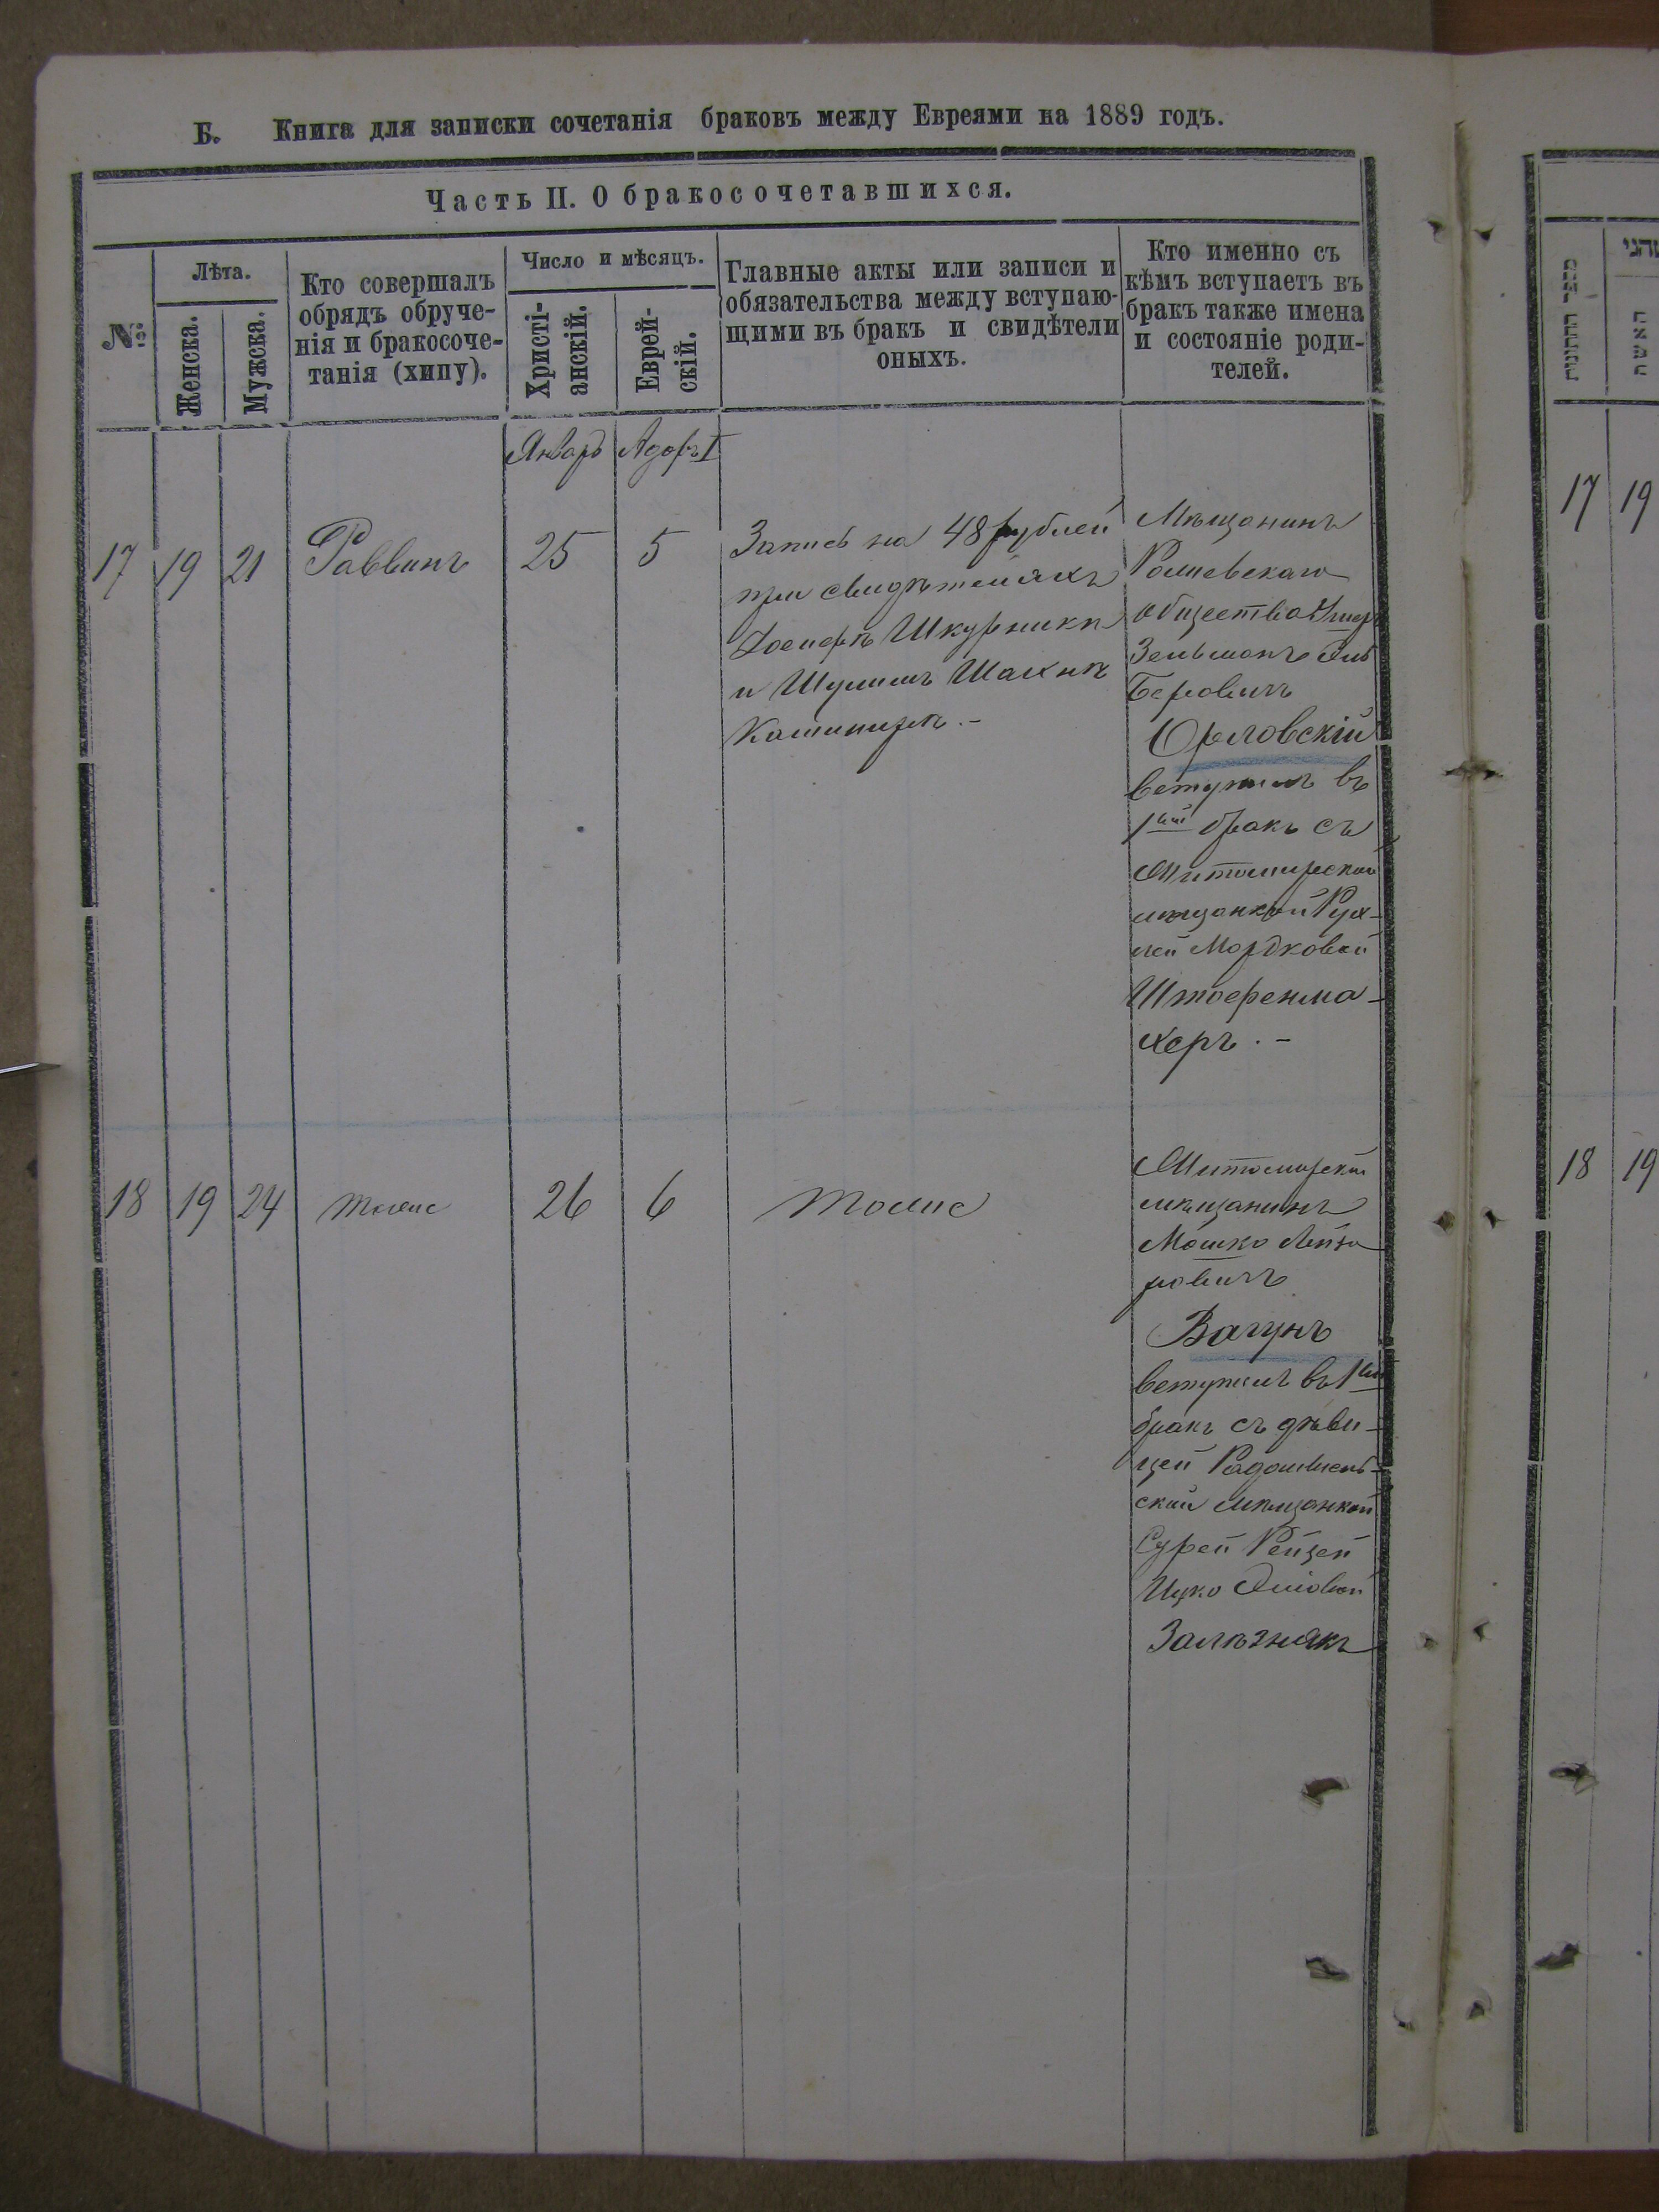 Б. Книга для записки сочетанія браковъ между Евреями на 1889 годъ.
Часть II. О бракосочетавшихся.
№
Лѣта.
Женска.
Мужска.
Кто совершалъ
обрядъ обруче-
нія и бракосоче-
танія (хипу).
Число и мѣсяцъ.
Христі-
анскій.
Еврей-
скій.
Главные акты или записи и
обязательства между вступаю-
щими въ бракъ и свидѣтели
оныхъ.
Кто именно съ
кѣмъ вступаетъ въ
бракъ также имена
и состояніе роди-
телей.
Январь Адаръ I
17 19 21 Раввинъ 25 5
Запись на 48 рублей
при свидѣтеляхъ
Шкурникъ
и Шулимъ
Мѣщанинъ
общества
Зельманъ
Беровичъ
Орловскій
вступилъ въ
1ый бракъ съ
Житомирской
мѣщанкой Рух-
лей Мордковой
Штоеренма-
херъ.-
18 19 24 тоже 26 6 тоже
Житомирскій
мѣщанинъ
Мошко Лейзе
ровичъ
Вагунъ
вступилъ въ 1ый
бракъ съ дѣви-
цей Радомысль-
ской мѣщанкой
Сурей Рейзей
Ицко
Залѣзнякъ
מספר החתונות
האשה
17 19
18 19